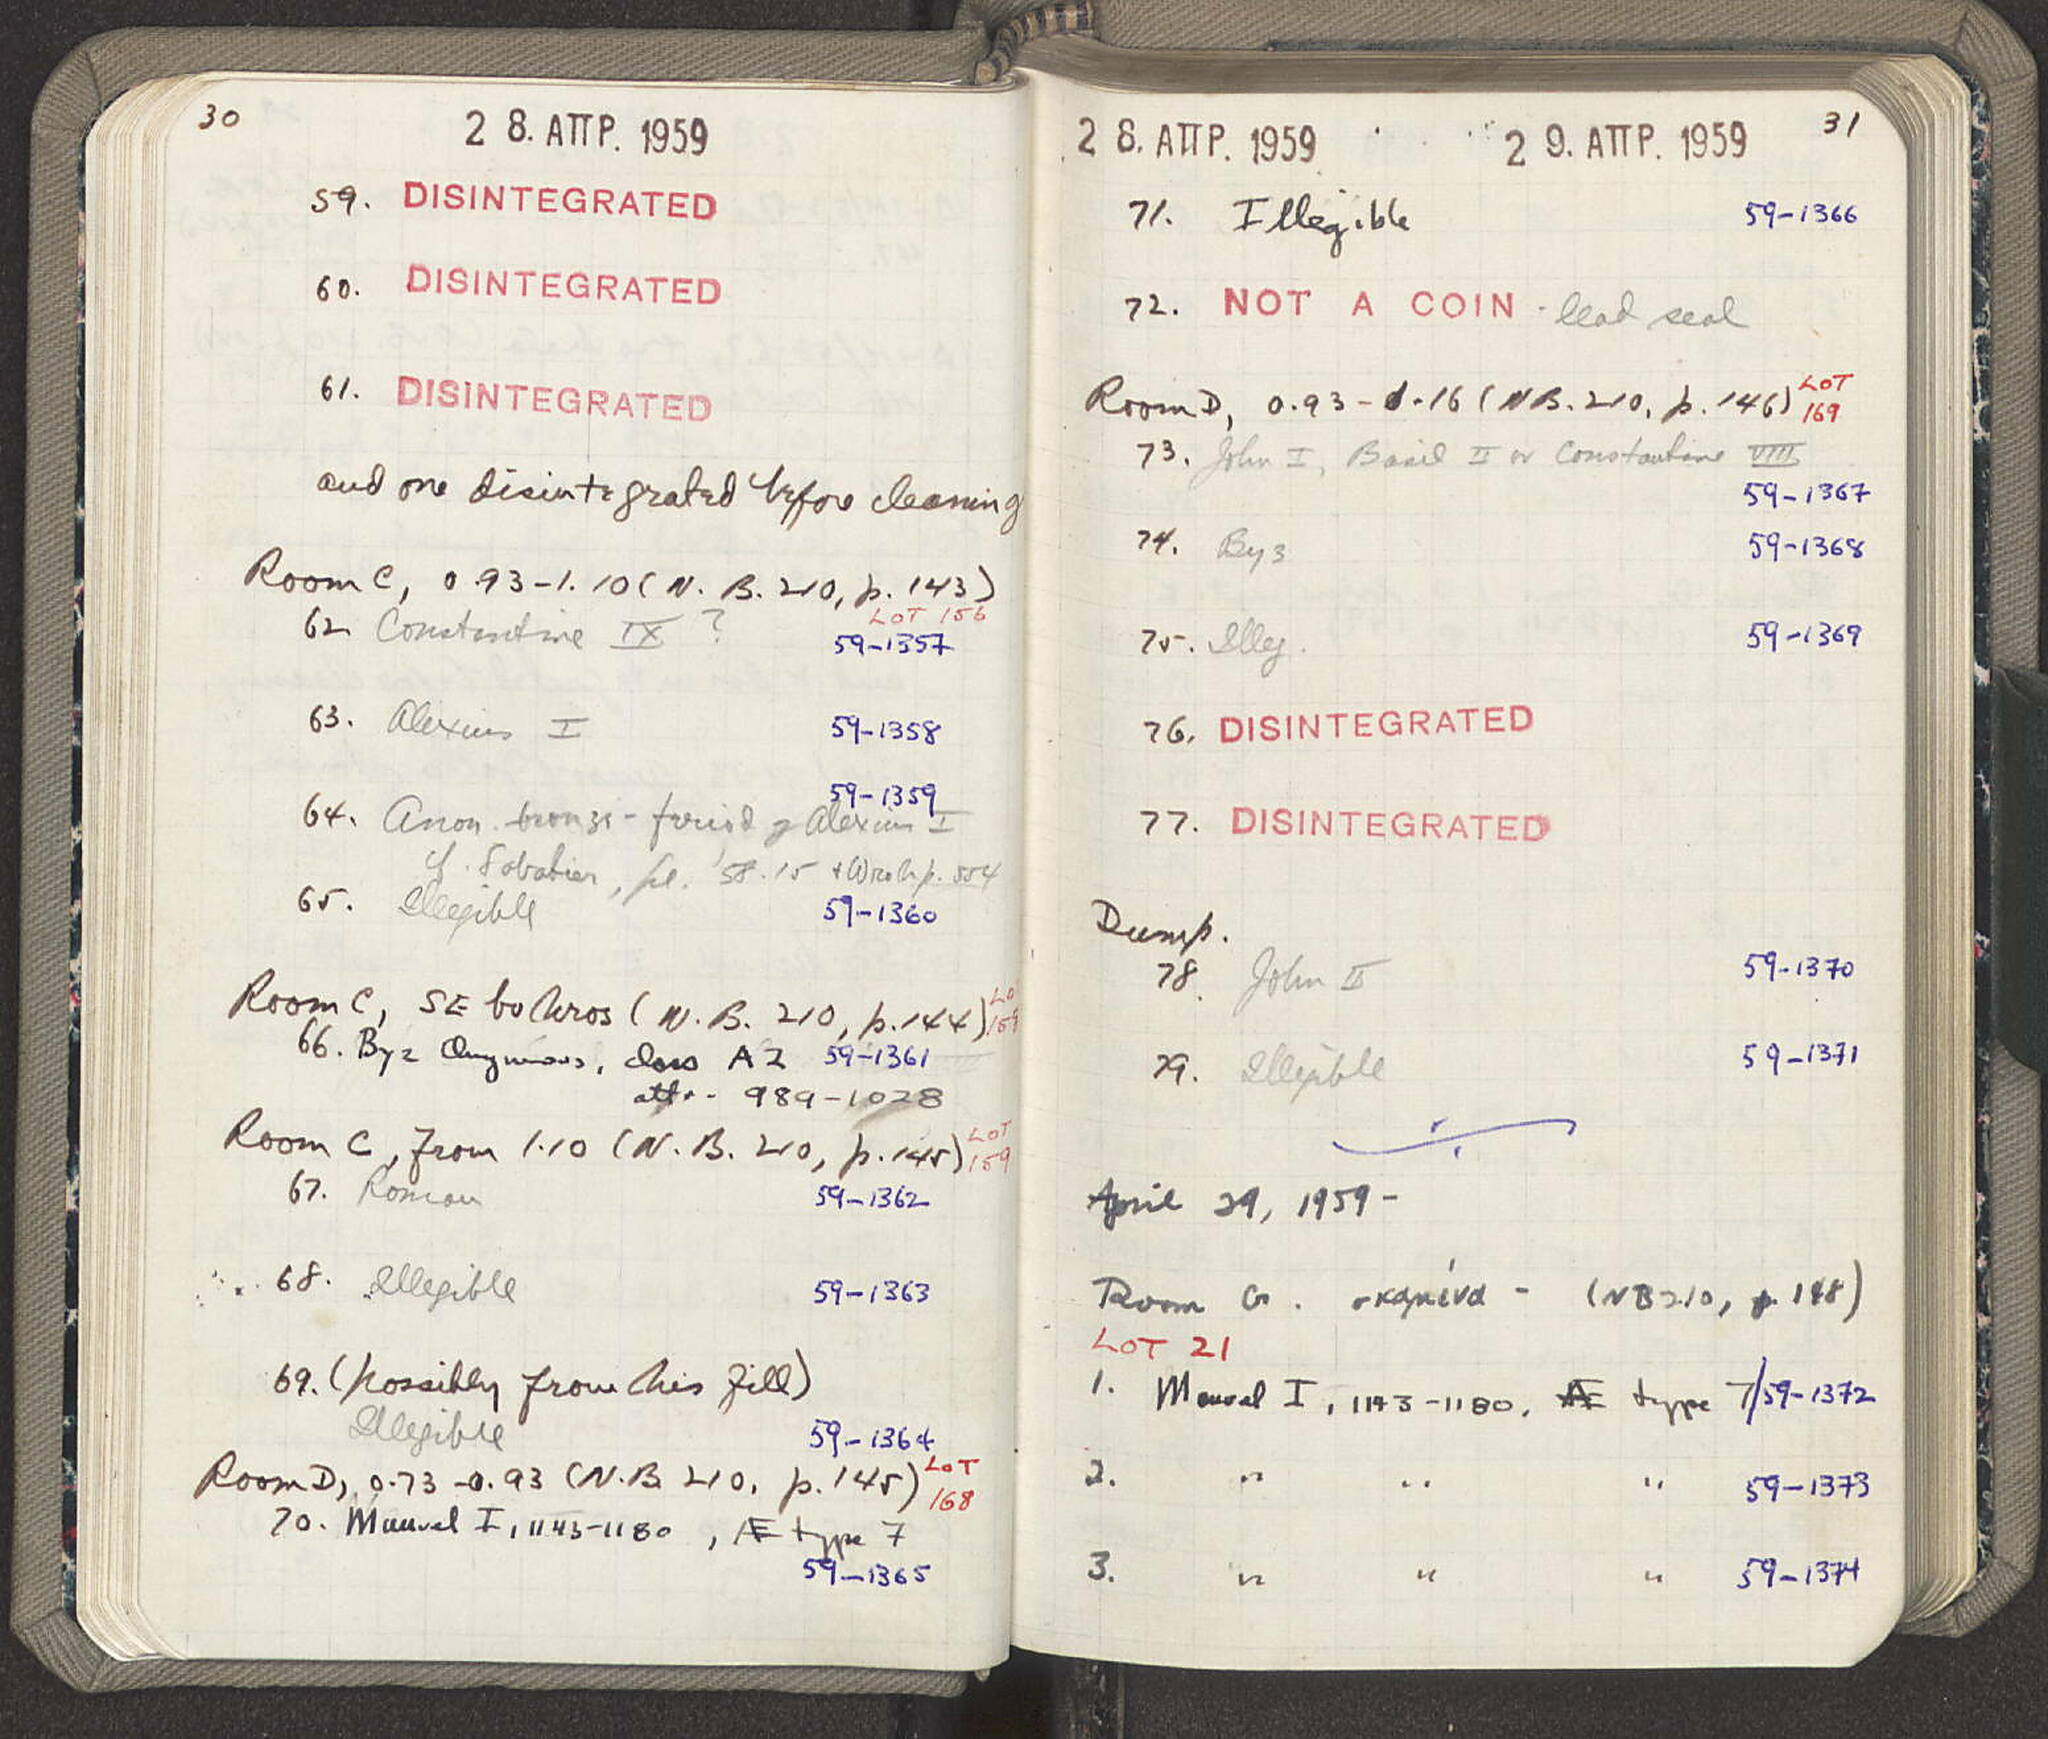 30
2 8. ΑΠΡ. 1959
59. DISINTEGRATED
60. DISINTEGRATED
61. DISINTEGRATED
and one disintegrated before cleaning
Room C, 0.93-1.10 (N. B. 210, p. 143)
LOT 156
62 Constantine IX ? 59-1357
63. Alexius I 59-1358
59-1359
64. Anon. bronze - period of Alexius I
cf. Sabatier, pl. 58.15 + Wroth p. 554
65. Illegible 59-1360
Room C, SE bothros (N. B. 210, p. 144) LOT
66. Byz Anonymous, class A2 59-1361
attr. 989-1028
Room C, from 1.10 (N. B. 210, p. 145) LOT 159
67. Roman 59-1362
68. Illegible 59-1363
69. (possibly from this fill)
Illegible 59-1364
Room D, 0.73-0.93 (N.B. 210, p. 145) LOT 168
70. Manuel I, 1143-1180, Æ type 7
59-1365
31
2 8. ΑΠΡ. 1959 2 9. ΑΠΡ. 1959
71. Illegible 59-1366
72. NOT A COIN - lead seal
Room D, 0.93-1.16 (NB. 210, p. 146) LOT 169
73. John I, Basil II or Constantine VIII
59-1367
74. Byz 59-1368
75. Illeg. 59-1369
76. DISINTEGRATED
77. DISINTEGRATED
Dump.
78. John II 59-1370
79. Illegible 59-1371
April 29, 1959 -
Room G. σκαμένα - (NB 210, p. 148)
LOT 21
1. Manuel I, 1143-1180, Æ type 7/59-1372
2. " " " 59-1373
3. " " " 59-1374